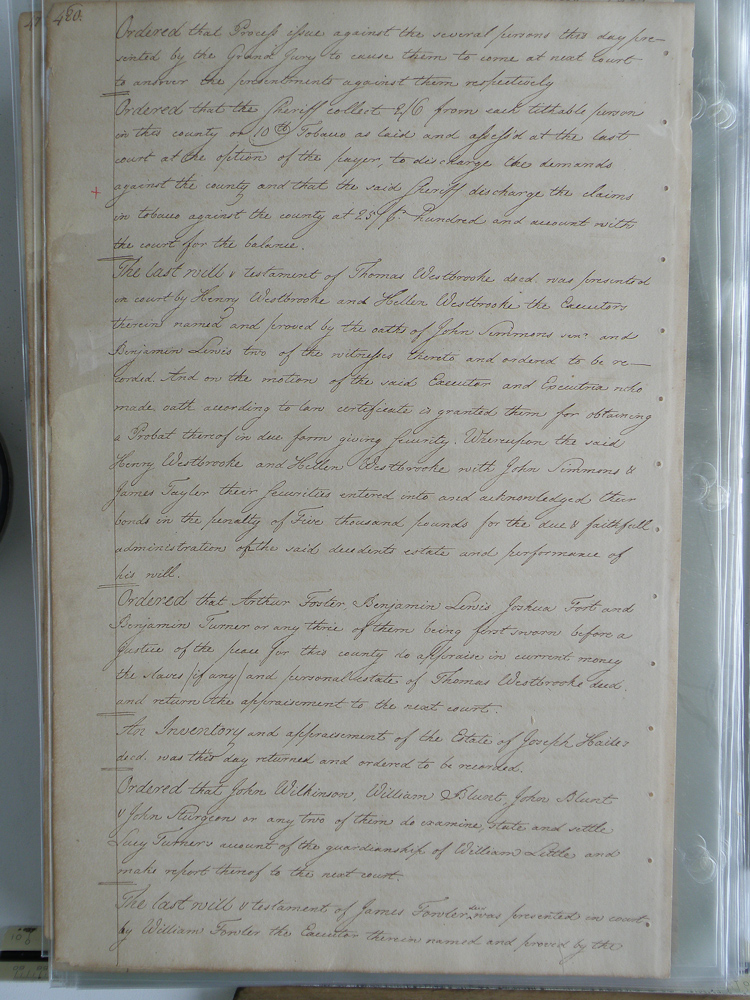 480.
Ordered that Process issue against the several persons this day pre-
sented by the Grand Jury to cause them to come at next Court
to answer the presentments against them respectively
Ordered that the Sheriff collect 2/6 from each tithable person
in this county or 10 lb Tobacco as laid and assess'd at the last
court at the option of the payer, to discharge the demands
against the county and that the said Sheriff discharge the claims
in tobacco against the county at 25/ pr. hundred and account with
the court for the balance.
The last will & testament of Thomas Westbrooke decd. was presented
in court by Henry Westbrooke and Hellen Westbrooke the Executors
therein named and proved by the oaths of John Simmons senr. and
Benjamin Lewis two of the witnesses thereto and ordered to be re-
corded. And on the motion of the said Executor and Executrix who
made oath according to law certificate is granted them for obtaining
a Probat thereof in due form giving security. Whereupon the said
Henry Westbrooke and Hellen Westbrooke with John Simmons &
James Tayler their securities entered into and acknowledged their
bonds in the penalty of Five thousand pounds for the due & faithfull
administration of the said decedents estate and performance of
his will.
Ordered that Arthur Foster, Benjamin Lewis Joshua Fort and
Benjamin Turner or any three of them being first sworn before a
Justice of the peace for this county do appraise in current money
the slaves /if any/ and personal estate of Thomas Westbrooke decd.
and return the appraisement to the next court.
An Inventory and appraisement of the Estate of Joseph
decd. was this day returned and ordered to be recorded.
Ordered that John Wilkinson, William Blunt, John Blunt
& John Sturgeon or any two of them do examine, state and settle
Lucy Turner's account of the guardianship of William Little and
make report thereof to the next court.
The last will & testament of James Fowler decd was presented in court
by William Fowler the Executor therein named and proved by the